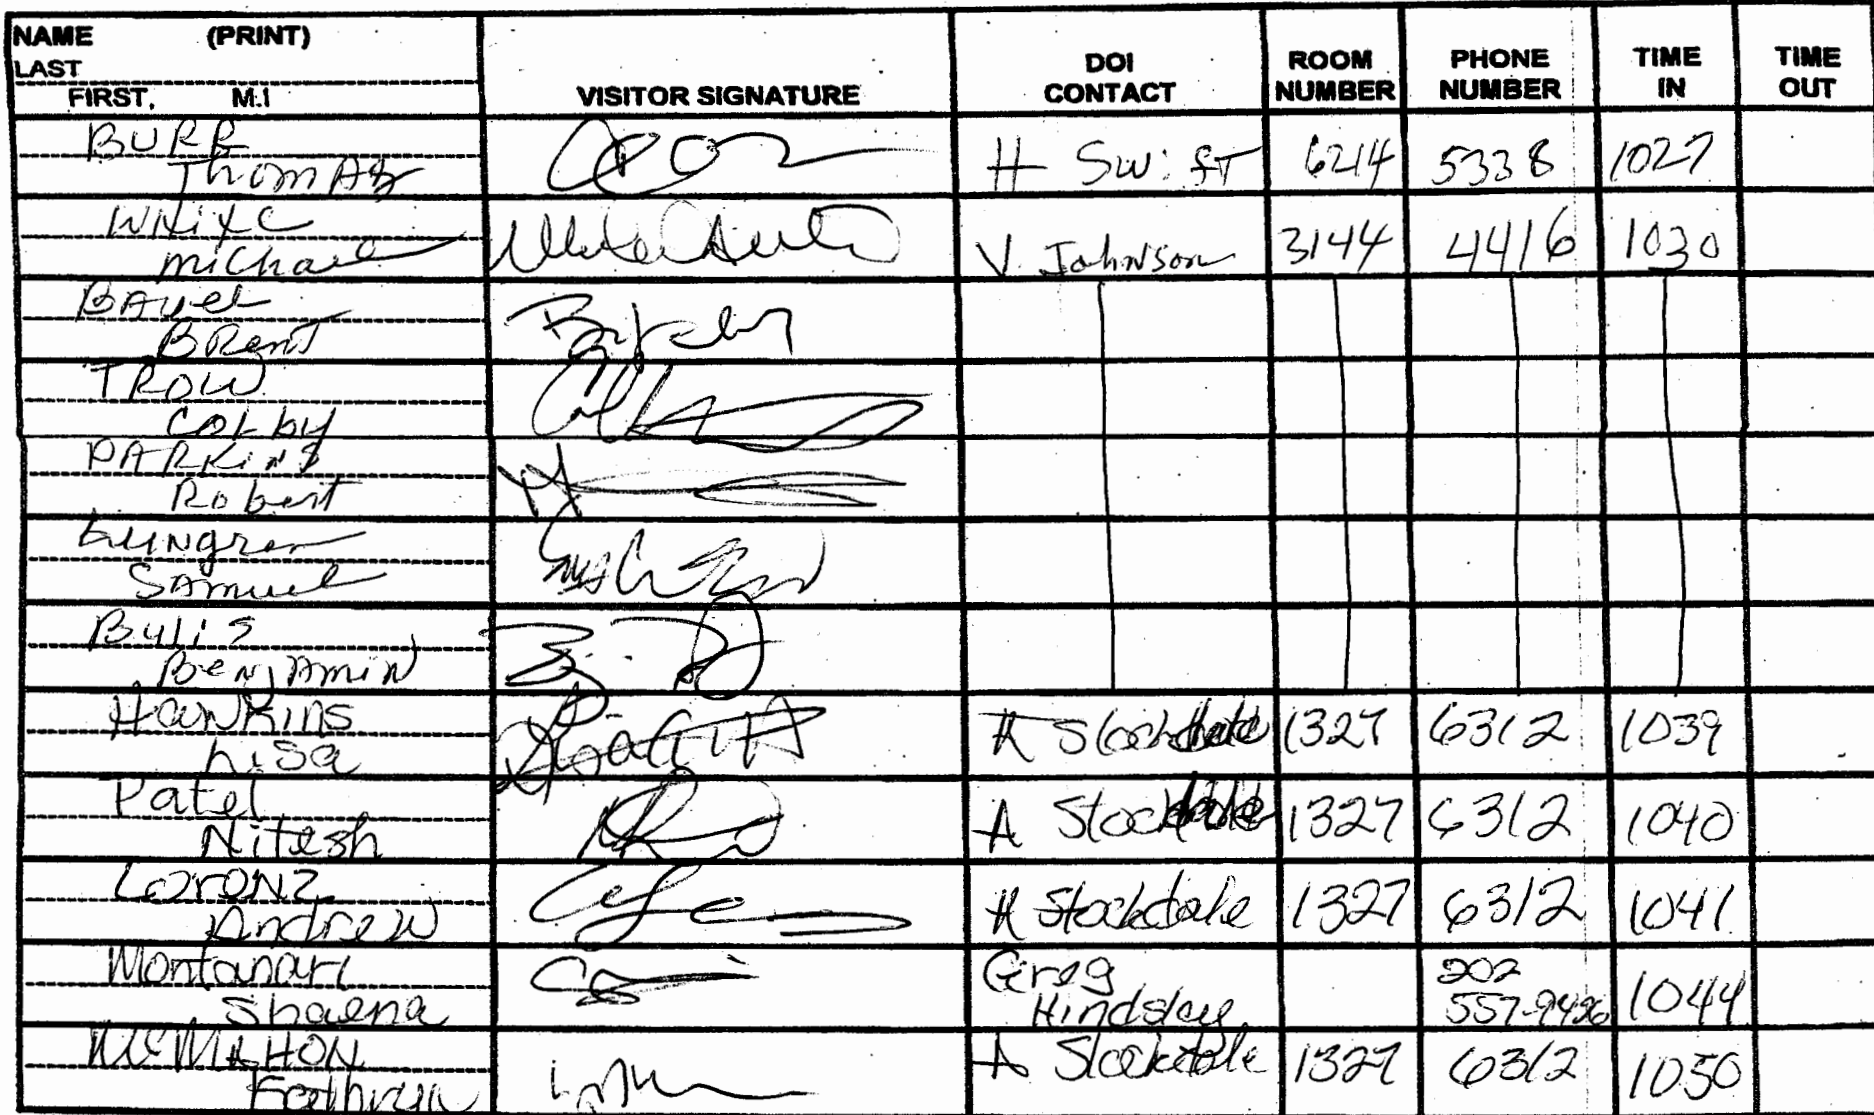 NAME (PRINT)
LAST
FIRST, M.I
VISITOR SIGNATURE
DOI CONTACT
ROOM NUMBER
PHONE NUMBER
TIME IN
TIME OUT
BURR
ThomAs
H Swift 6214 5338 1027
White
michael
V. Johnson 3144 4416 1030
BAuer
BRenT
TROW
COLby
PARKiNS
Robert
Lungren
SAmuel
Bulis
BeNjAmiN
Hawkins
Lisa
A Stockdale 1327 6312 1039
Patel
Nitesh
A Stockdale 1327 6312 1040
LorenZ
Andrew
A Stockdale 1327 6312 1041
Montanari
Shaena
Greg
Hindsley
202
557-9426 1044
McMAHON
Kathryn
A Stockdale 1327 6312 1050